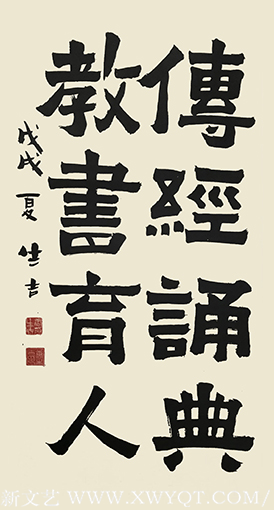 傳經誦典
教書育人
戊戌夏生吉
新文艺 WWW.XWYQT.COM